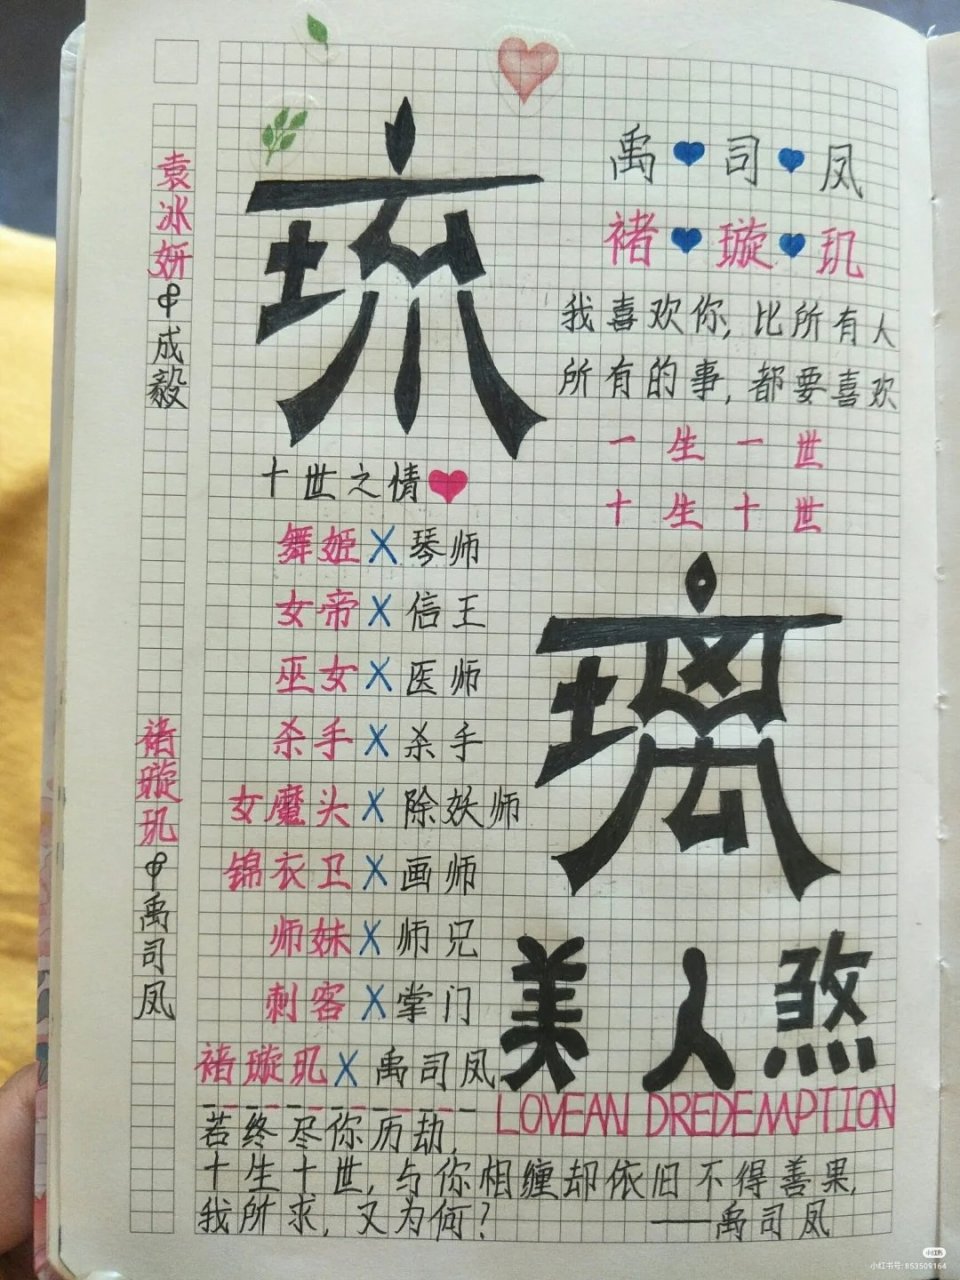 琉
禹司凤
褚璇玑
我喜欢你,比所有人
所有的事,都要喜欢
一生一世
十生十世
琉璃
美人煞
LOVEAN DREDEMPTIION
袁冰妍
成毅
褚璇玑
禹司凤
十世之情
舞姬X琴师
女帝X信王
巫女X医师
杀手X杀手
女魔头X除妖师
锦衣卫X画师
师妹X师兄
刺客X掌门
褚璇玑X禹司凤
若终尽你历劫,
十生十世,与你相缠却依旧不得善果,
我所求,又为何?
——禹司凤
小红书
小红书号: 853509164